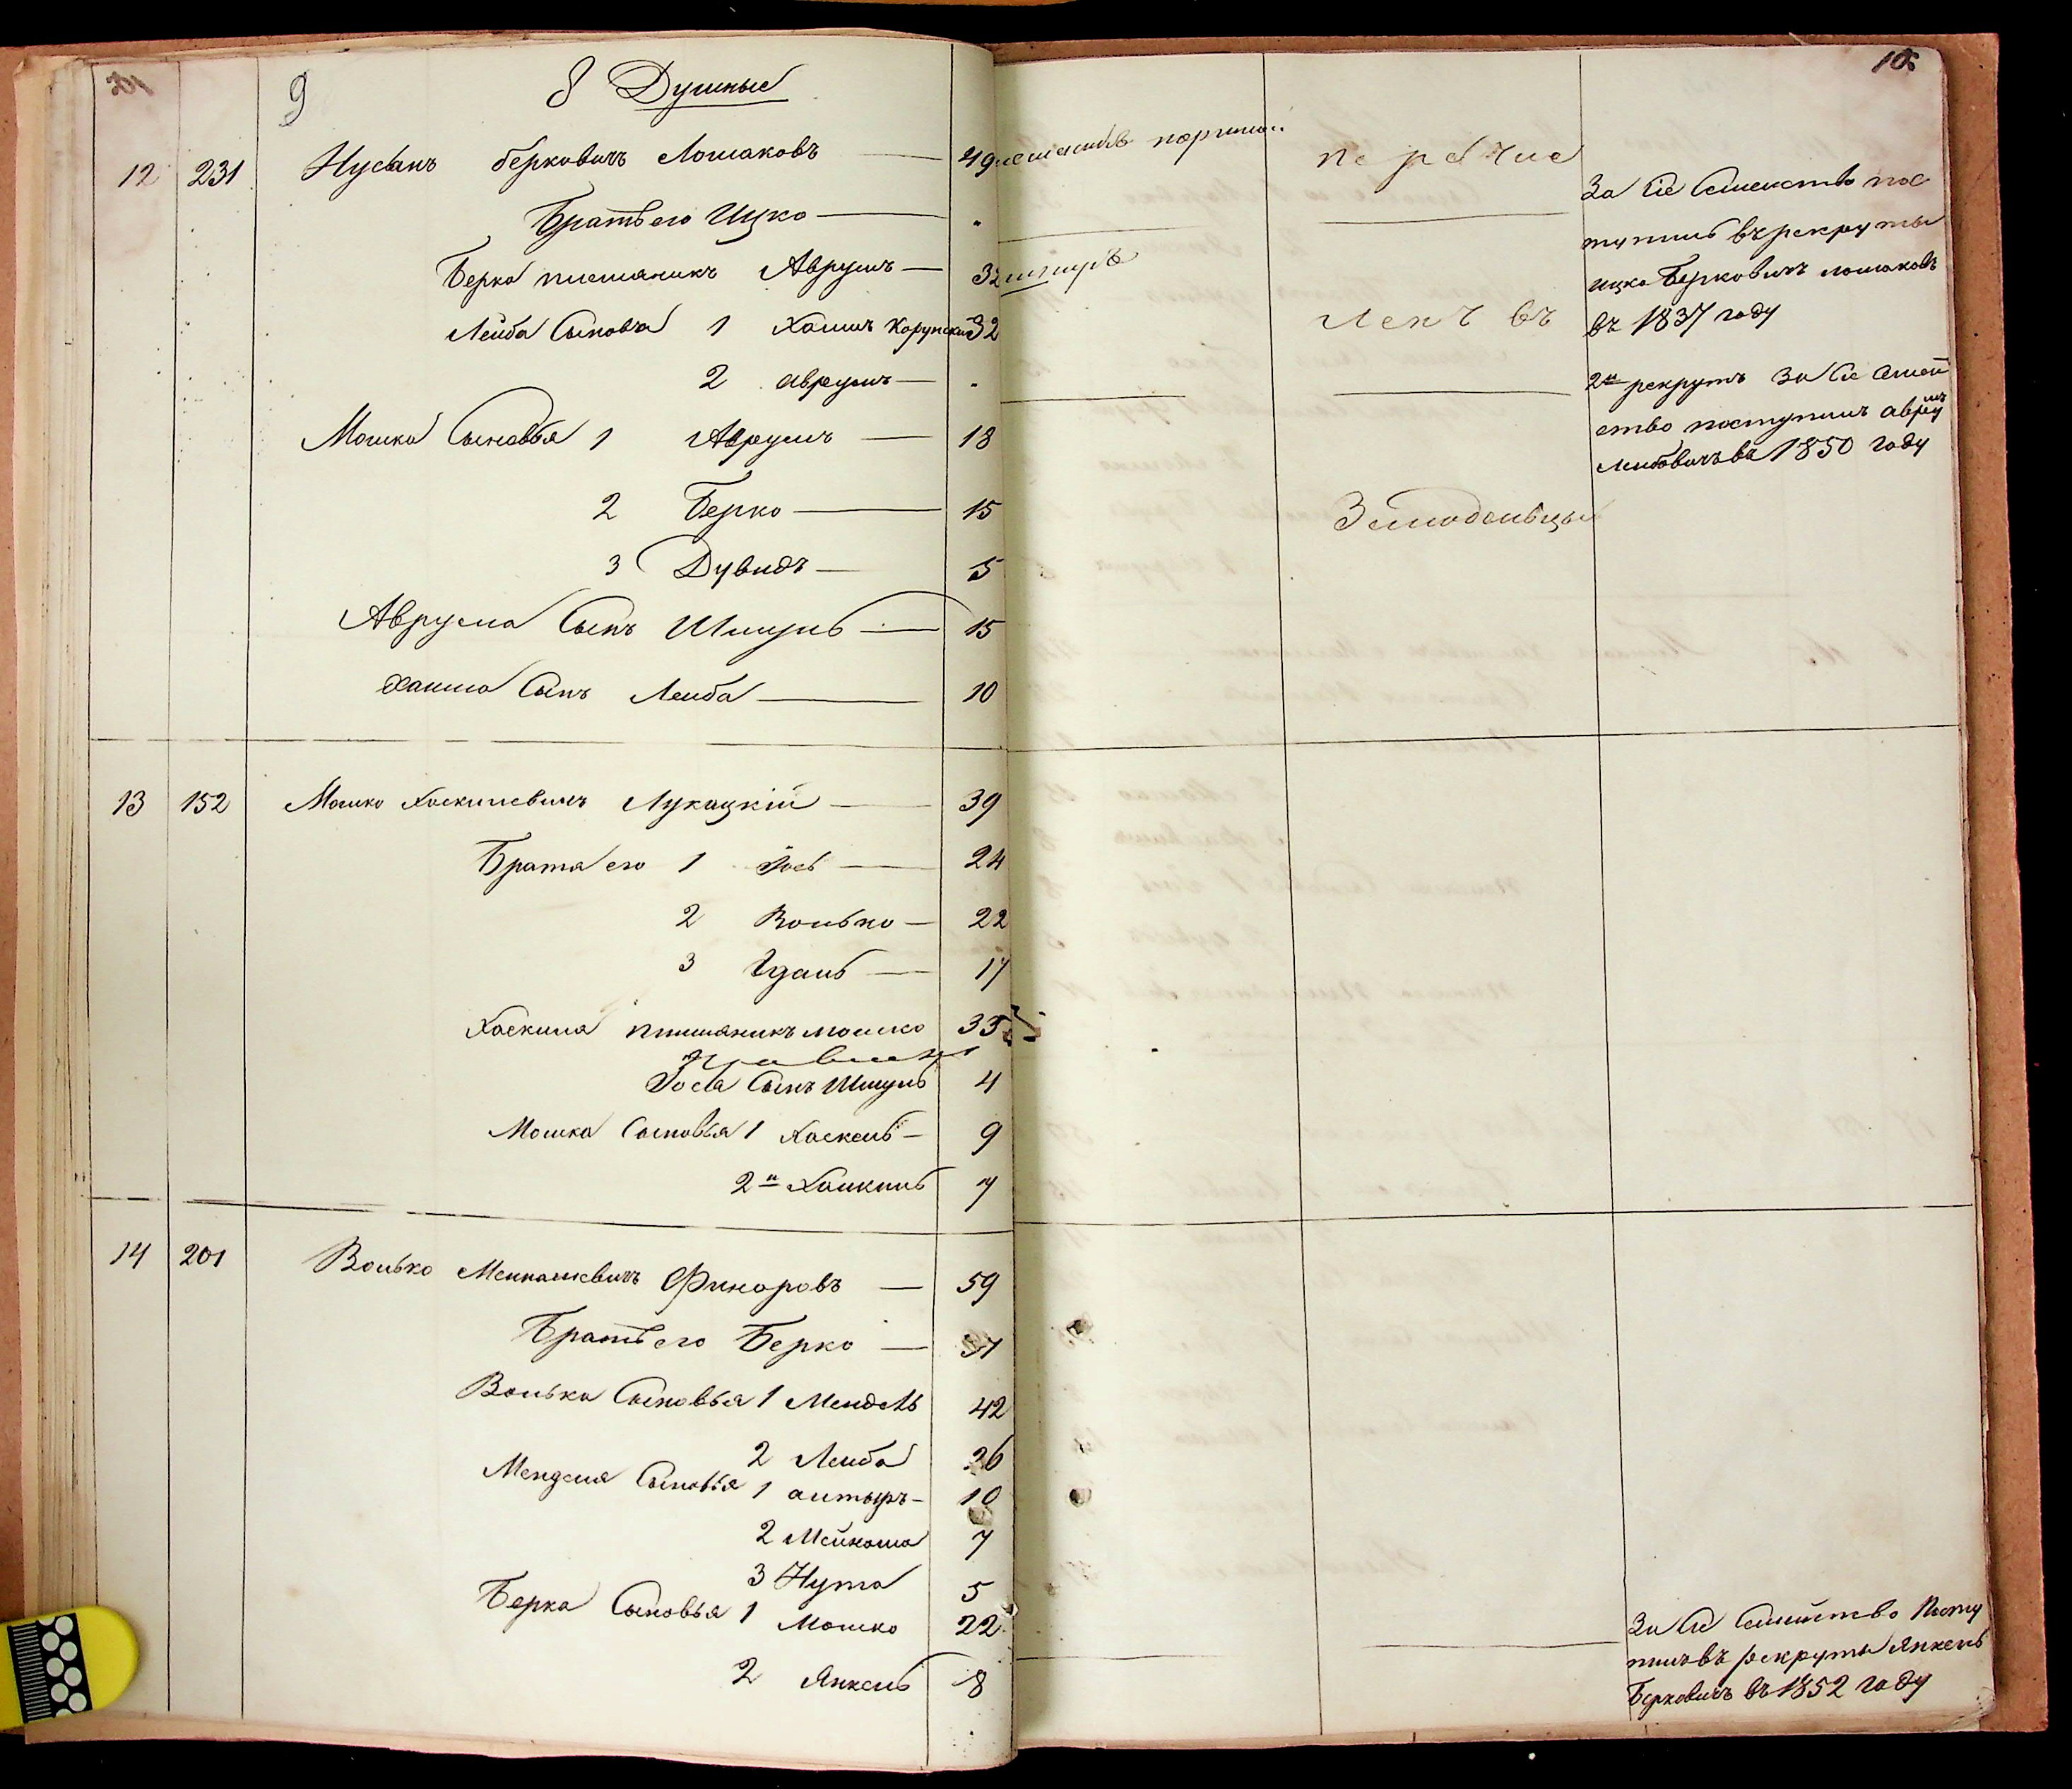 9 8 Душные
12 231 Нусынъ берковичъ Лошаковъ — 49
Братъ его Ицко — "
Берка племяникъ Аврумъ — 32
Лейба Сыновья 1 Хаимъ 32
2 аврумъ — "
Мошка Сыновья 1 Аврумъ — 18
2 Берко — 15
3 Дувидъ — 5
Аврума Сынъ Шмуль — 15
Хаима Сынъ Лейба — 10
13 152 Мошко Хаскилевичъ Лукацкій — 39
Брата его 1 Іось — 24
2 Волько — 22
3 — 17
Хаскила племяникъ мошко 35
Іося Сынъ Шмуль 4
Мошка Сыновья 1 Хаскель — 9
2й 7
14 201 Волько Менашевичъ Финоровъ — 59
Братъ его Берко — 37
Волька Сыновья 1 Мендель 42
2 Лейба 26
Менделя Сыновья 1 алтыръ — 10
2 7
3 Нута 5
Берка Сыновья 1 Мошко 22
2 Янкель 8
10
За сіе Семейство пос
тупилъ въ рекруты
ицко Берковичъ лошаковъ
въ 1837 году
2й рекрутъ За сіе Семей
ство поступилъ аврумъ
Лейбовичъ въ 1850 году
За сіе Семейство Посту
пилъ въ рекруты Янкель
Берковичъ въ 1852 году